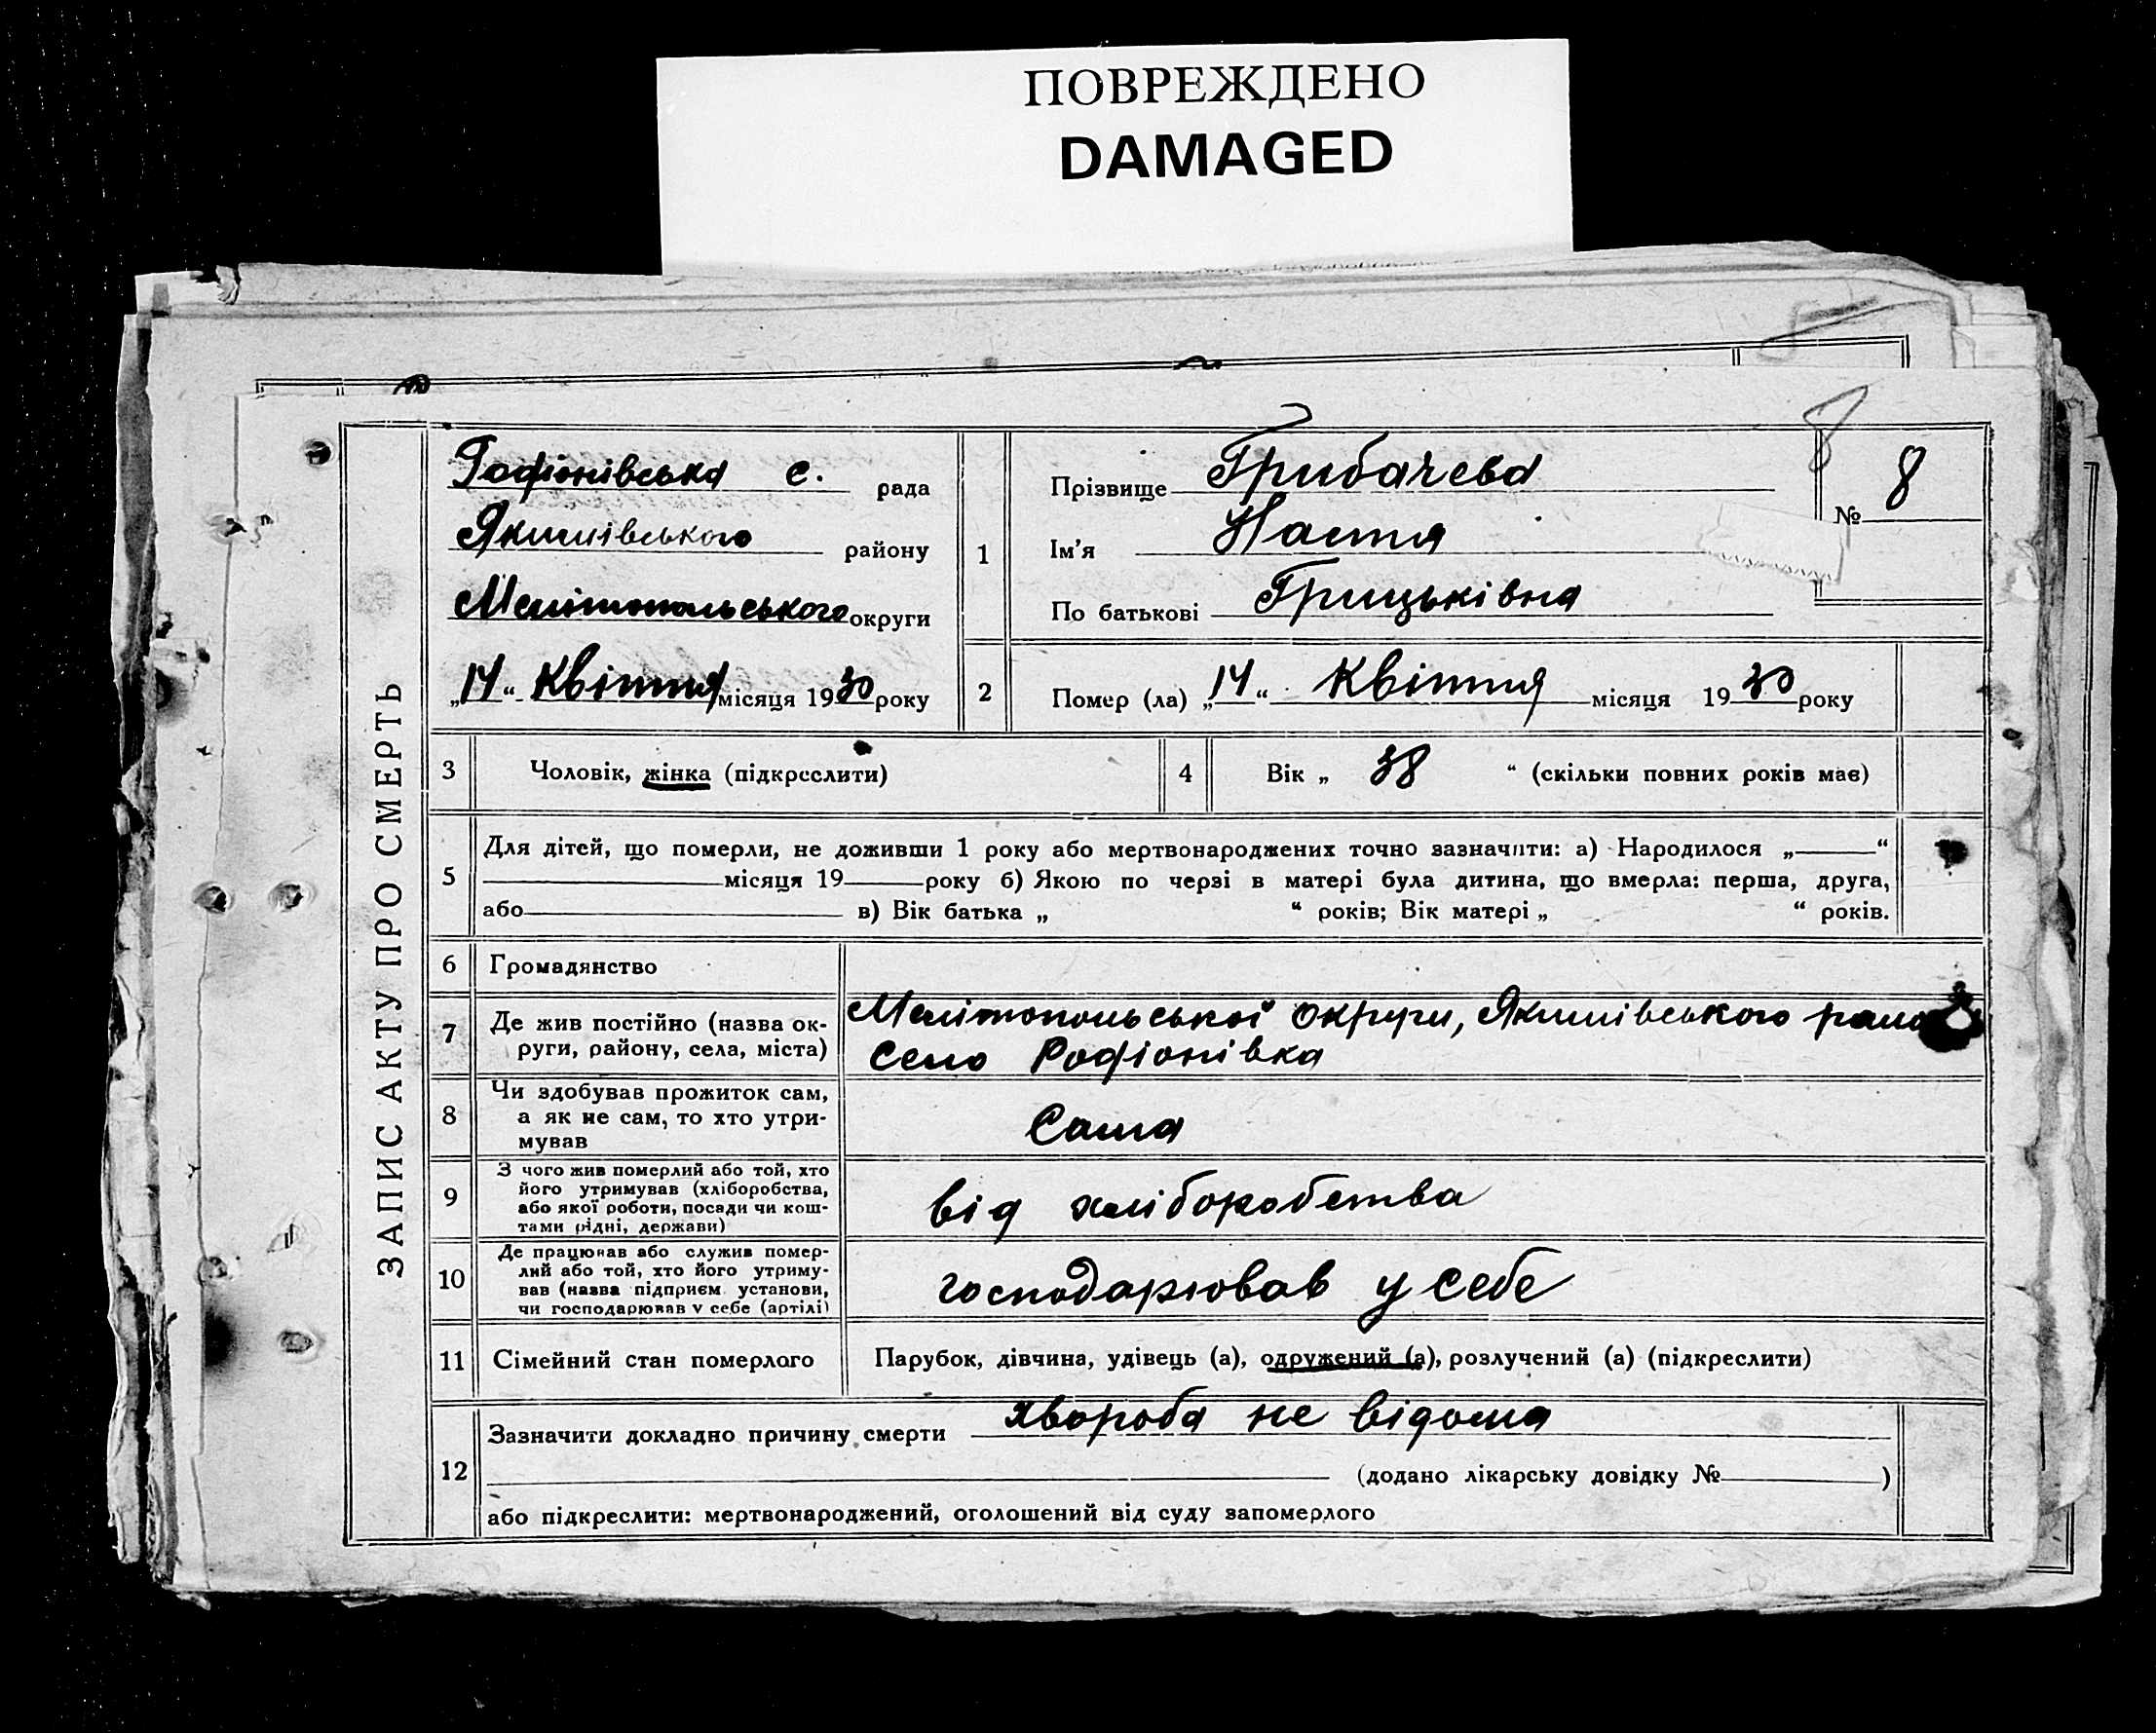 ПОВРЕЖДЕНО
DAMAGED
8
ЗАПИС АКТУ ПРО СМЕРТЬ
Родіонівська с. рада
Якимівського району
Мелітопольського округи
„14“ Квітня місяця 1930 року
1
Прізвище Грибачева
Ім’я Настя
По батькові Грицьківна
№ 8
2 Помер (ла) „14“ Квітня місяця 1930 року
3 Чоловік, жінка (підкреслити)
4 Вік „ 38 “ (скільки повних років має)
5
Для дітей, що померли, не доживши 1 року або мертвонароджених точно зазначити: а) Народилося „ “
місяця 19 року б) Якою по черзі в матері була дитина, що вмерла: перша, друга,
або в) Вік батька „ “ років; Вік матері „ “ років.
6 Громадянство
7 Де жив постійно (назва ок-
руги, району, села, міста)
Мелітопольської округи, Якимівського
село Родіонівка
8 Чи здобував прожиток сам,
а як не сам, то хто утри-
мував
Сама
9 З чого жив померлий або той, хто
його утримував (хліборобства,
або якої роботи, посади чи кош-
тами рідні, держави)
від хліборобства
10 Де працював або служив помер-
лий або той, хто його утриму-
вав (назва підприєм. установи,
чи господарював у себе (артілі)
господарював у себе
11 Сімейний стан померлого
Парубок, дівчина, удівець (а), одружений (а), розлучений (а) (підкреслити)
12
Зазначити докладно причину смерти хвороба не відома
(додано лікарську довідку № )
або підкреслити: мертвонароджений, оголошений від суду запомерлого